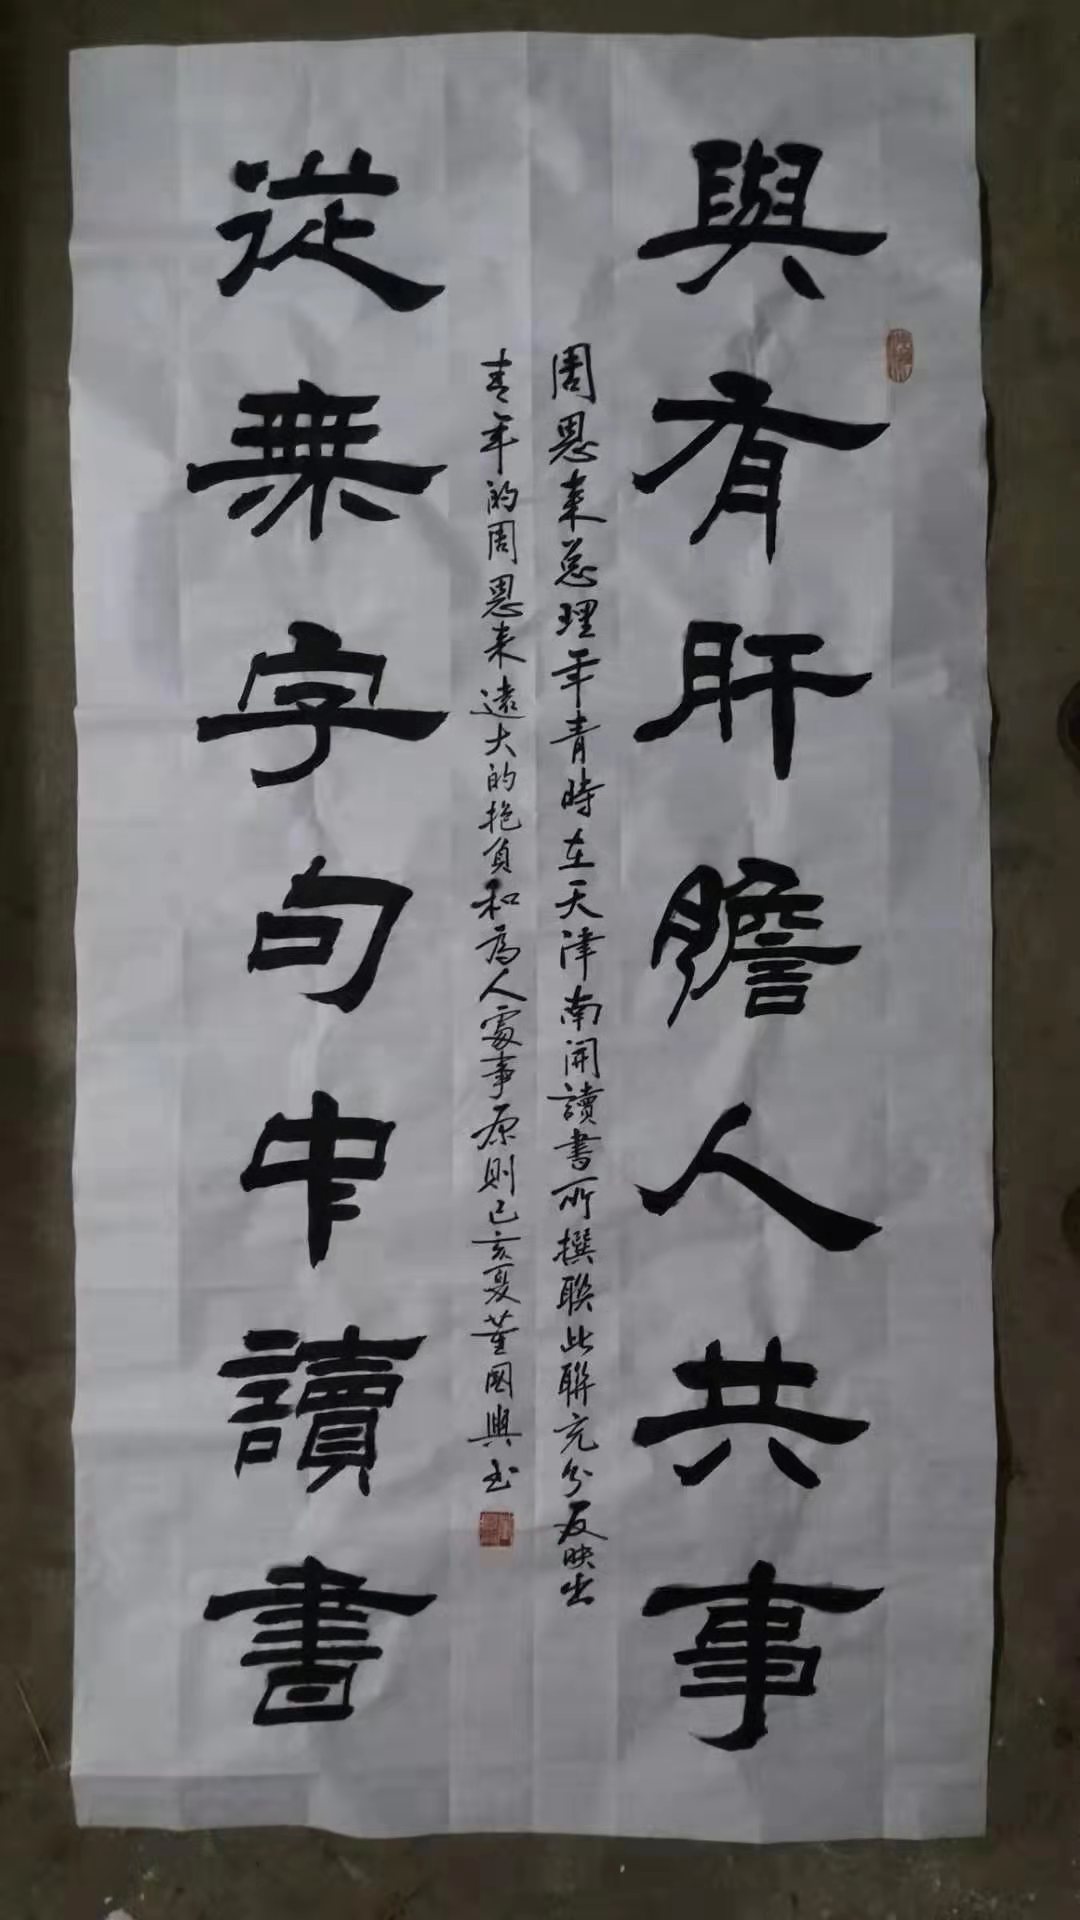 與有肝膽人共事
從無字句中讀書
周恩来总理年青時在天津南開讀書所撰聨此聨充分反映出
青年的周恩来遠大的抱負和為人處事原則己亥夏董國興书